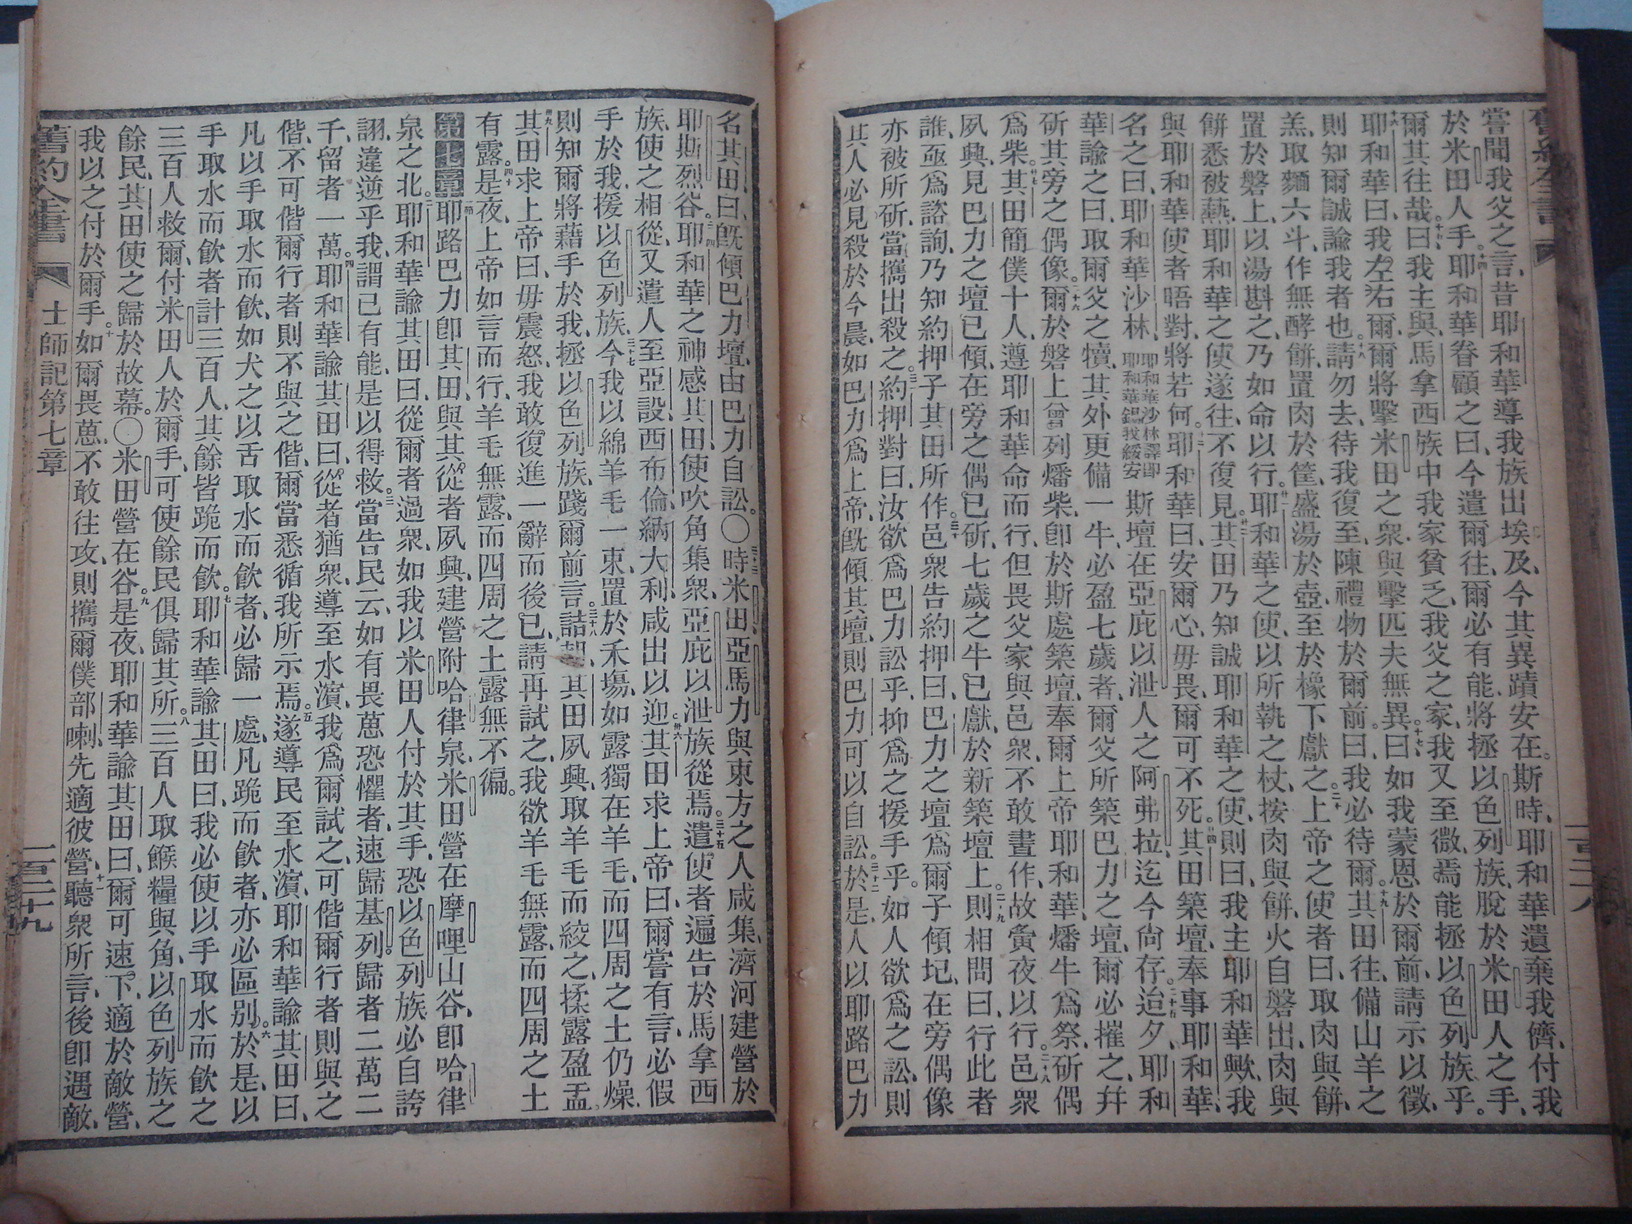 舊約全書
嘗聞我父之言、昔耶和華導我族出埃及、今其異蹟安在。斯時、耶和華遺棄我儕、付我
於米田人手。十四耶和華眷顧之曰、今遣爾往、爾必有能、將拯以色列族、脫於米田人之手、
爾其往哉。十五曰、我主與、馬拿西族中、我家貧乏、我父之家、我又至微、焉能拯以色列族乎。
十六耶和華曰、我左右爾、爾將擊米田之衆、與擊匹夫無異。十七曰、如我蒙恩於爾前、請示以徵、
則知爾誠諭我者也。十八請勿去、待我復至、陳禮物於爾前。曰、我必待爾。十九其田往、備山羊之
羔、取麵六斗、作無酵餅、置肉於筐、盛湯於壺、至於橡下獻之。二十上帝之使者曰、取肉與餅、
置於磐上、以湯斟之、乃如命以行。廿一耶和華之使、以所執之杖、按肉與餅、火自磐出、肉與
餅悉被爇、耶和華之使遂往、不復見。廿二其田乃知誠耶和華之使、則曰、我主耶和華歟、我
與耶和華使者晤對、將若何。廿三耶和華曰、安爾心、毋畏、爾可不死。廿四其田築壇、奉事耶和華、
名之曰、耶和華沙林、耶和華沙林譯卽耶和華錫我綏安斯壇在亞庇以泄人之阿弗拉、迄今尙存。二十五迨夕、耶和
華諭之曰、取爾父之犢、其外更備一牛、必盈七歲者、爾父所築巴力之壇、爾必摧之、幷
斫其旁之偶像。二十六爾於磐上、曾列燔柴、卽於斯處築壇、奉爾上帝耶和華、燔牛爲祭、斫偶
爲柴。廿七其田簡僕十人、遵耶和華命而行、但畏父家與邑衆、不敢晝作、故夤夜以行。二十八邑衆
夙興、見巴力之壇已傾、在旁之偶已斫、七歲之牛、已獻於新築壇上。二十九則相問曰、行此者
誰、亟爲諮詢、乃知約押子其田所作。三十邑衆告約押曰、巴力之壇、爲爾子傾圮、在旁偶像
亦被所斫、當攜出殺之。三一約押對曰、汝欲爲巴力訟乎、抑爲之援手乎。如人欲爲之訟、則
其人必見殺於今晨、如巴力爲上帝、旣傾其壇、則巴力可以自訟。三十二於是人以耶路巴力
一百二十八
名其田曰、旣傾巴力壇、由巴力自訟。〇三十三時米田亞馬力與東方之人咸集、濟河建營於
耶斯烈谷。三四耶和華之神感其田、使吹角集衆、亞庇以泄族從焉。三十五遣使者遍告於馬拿西
族、使之相從、又遣人至亞設西布倫納大利、咸出以迎。卅六其田求上帝曰、爾嘗有言、必假
手於我、援以色列族。三十七今我以綿羊毛一束、置於禾場、如露獨在羊毛、而四周之土仍燥、
則知爾將藉手於我、拯以色列族、踐爾前言。三十八詰朝其田夙興、取羊毛而綾之、揉露盈盂。
卅九其田求上帝曰、毋震怒、我敢復進一辭而後已、請再試之、我欲羊毛無露、而四周之土
有露。四十是夜、上帝如言而行、羊毛無露、而四周之土露無不徧。
第七章一耶路巴力卽其田、與其從者夙興、建營附哈律泉、米田營在摩哩山谷、卽哈律
泉之北。二耶和華諭其田曰、從爾者過衆、如我以米田人付於其手、恐以色列族必自誇
詡、違逆乎我、謂已有能、是以得救。三當告民云、如有畏葸恐懼者、速歸基列、歸者二萬二
千、留者一萬。四耶和華諭其田曰、從者猶衆、導至水濱、我爲爾試之、可偕爾行者、則與之
偕、不可偕爾行者、則不與之偕、爾當悉循我所示焉。五遂導民至水濱、耶和華諭其田曰、
凡以手取水而飲、如犬之以舌取水而飲者、必歸一處、凡跪而飲者、亦必區別。六於是以
手取水而飲者、計三百人、其餘皆跪而飲。七耶和華諭其田曰、我必使以手取水而飲之
三百人救爾、付米田人於爾手、可使餘民俱歸其所。八三百人取餱糧與角、以色列族之
餘民、其田使之歸於故幕。〇米田營在谷。九是夜、耶和華諭其田曰、爾可速下、適於敵營、
我以之付於爾手。十如爾畏葸、不敢往攻、則攜爾僕部喇、先適彼營。十一聽衆所言、後卽遇敵、
舊約全書 士師記第七章 一百二十九